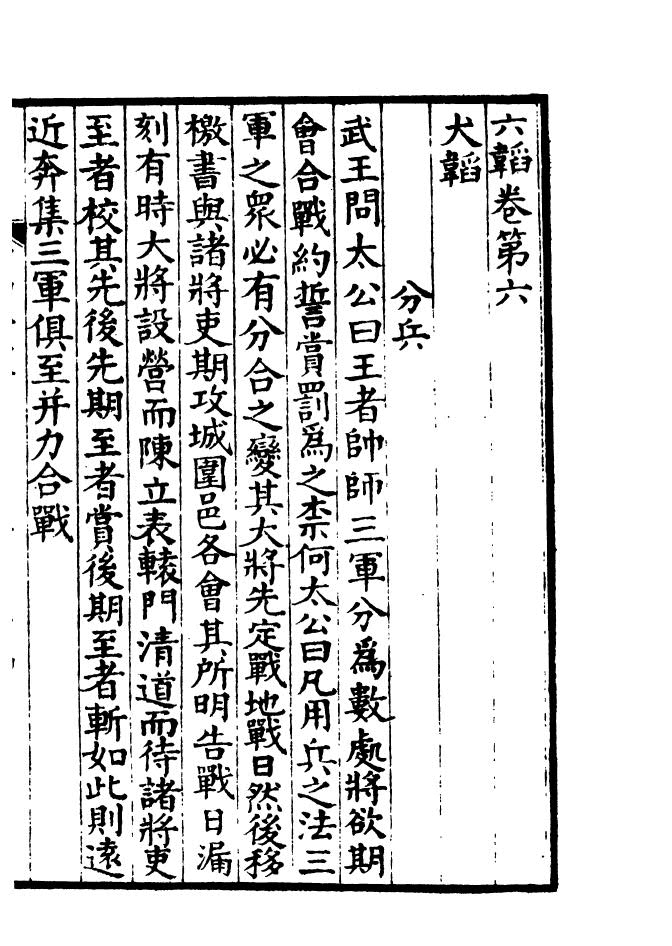 六韜卷第六
犬韜
分兵
武王問太公曰王者帥師三軍分爲數處將欲期
會合戰約誓賞罰爲之柰何太公曰凡用兵之法三
軍之眾必有分合之變其大將先定戰地戰日然後移
檄書與諸將吏期攻城圍邑各會其所明告戰日漏
刻有時大將設營而陳立表轅門清道而待諸將吏
至者校其先後先期至者賞後期至者斬如此則遠
近奔集三軍俱至并力合戰